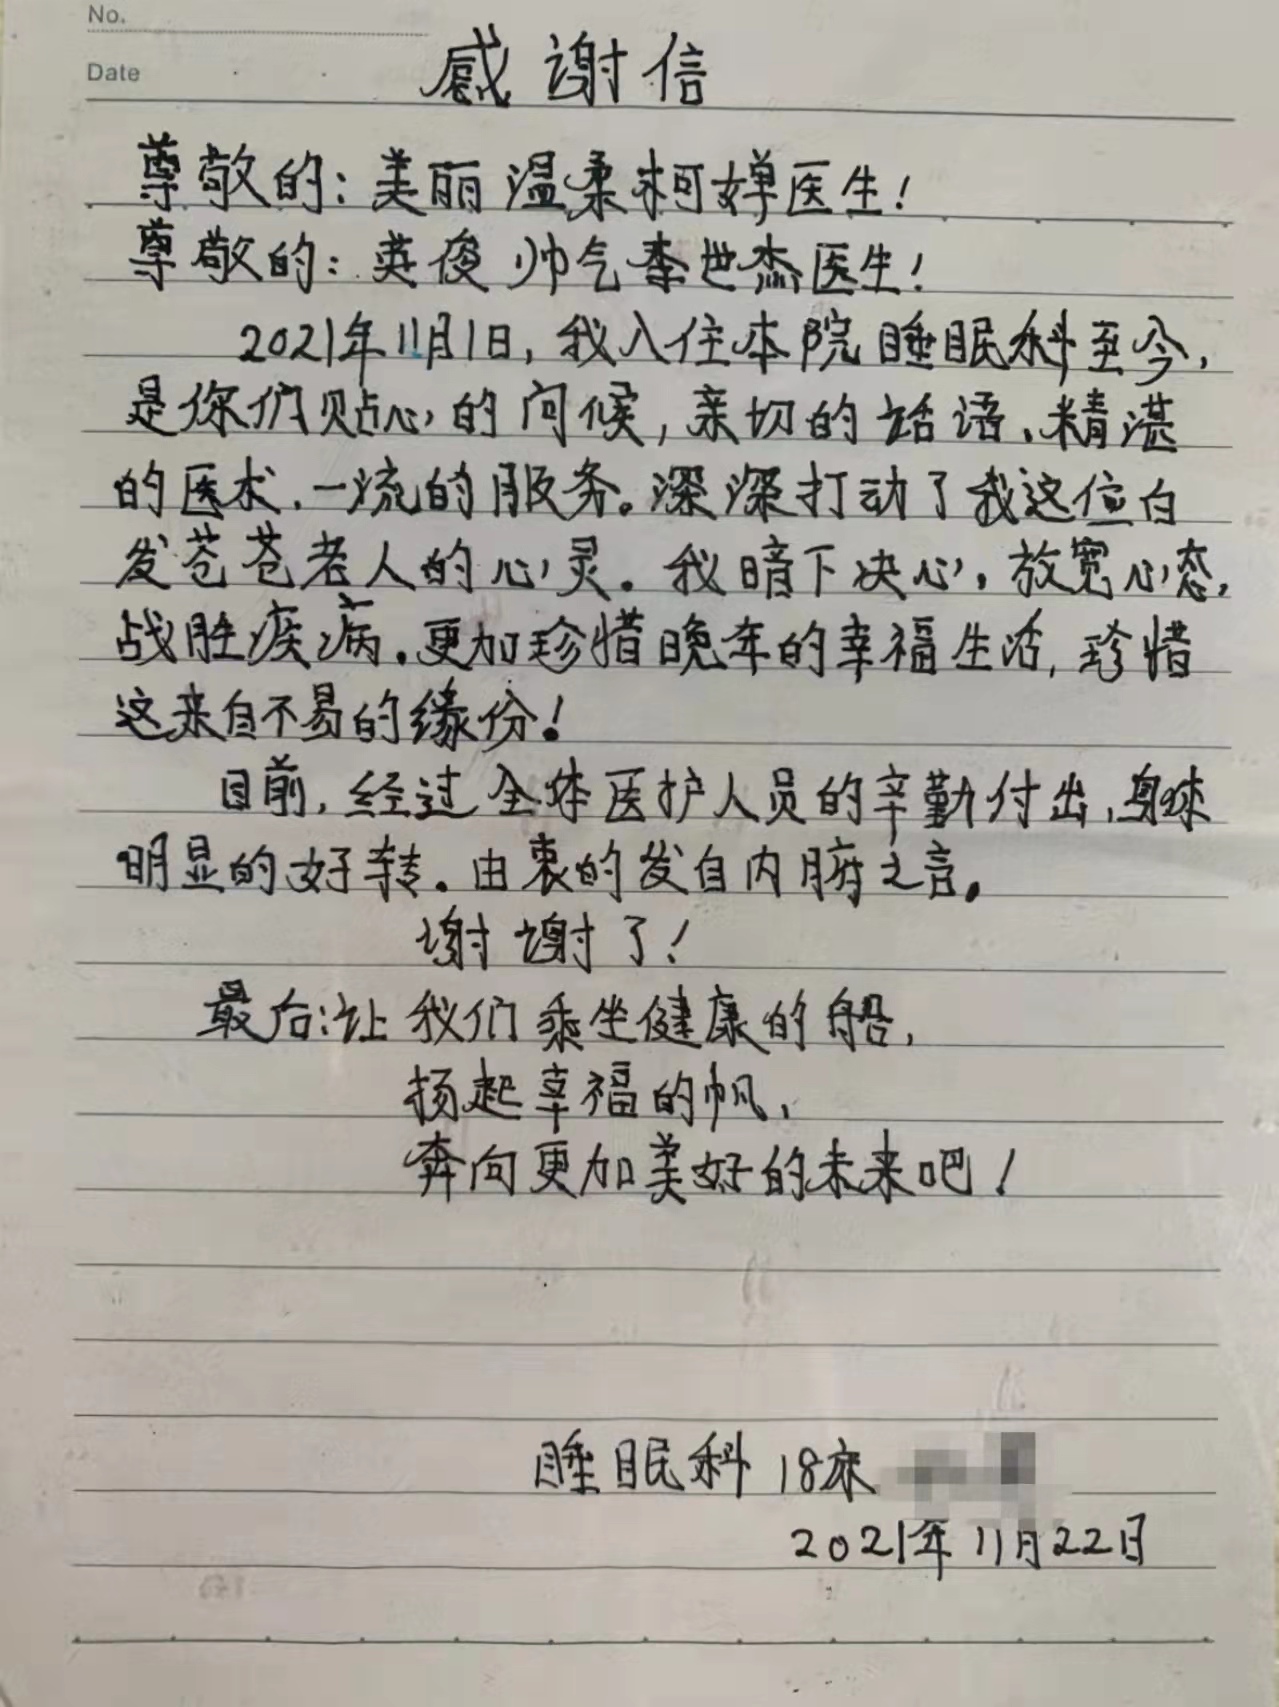 No.
Date
感谢信
尊敬的:美丽温柔柯婵医生!
尊敬的:英俊帅气李世杰医生!
2021年11月1日,我入住本院睡眠科至今,
是你们贴心的问候,亲切的话语、精湛
的医术、一流的服务。深深打动了我这位白
发苍苍老人的心灵。我暗下决心,放宽心态,
战胜疾病。更加珍惜晚年的幸福生活,珍惜
这来自不易的缘份!
目前,经过全体医护人员的辛勤付出,身体
明显的好转。由衷的发自内腑之言。
谢谢了!
最后:让我们乘坐健康的船,
扬起幸福的帆、
奔向更加美好的未来吧!
睡眠科 18床
2021年11月22日